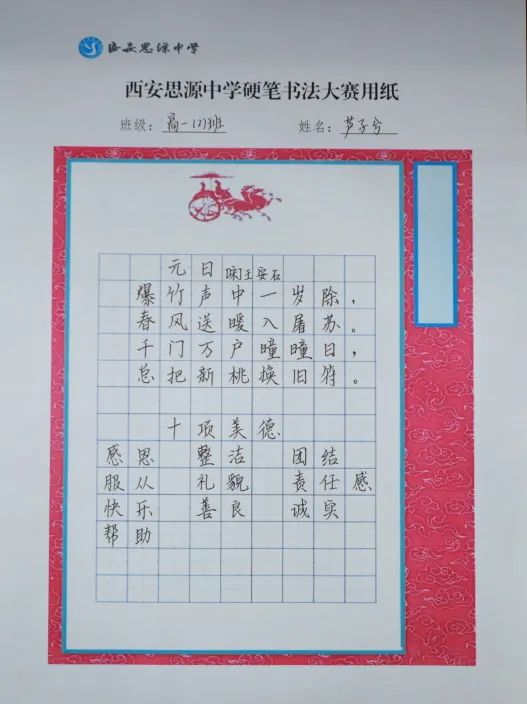 西安思源中学
西安思源中学硬笔书法大赛用纸
班级：高一(2)班 姓名：芦子兮
元日 宋王安石
爆竹声中一岁除，
春风送暖入屠苏。
千门万户曈曈日，
总把新桃换旧符。
十项美德
感恩 整洁 团结
服从 礼貌 责任感
快乐 善良 诚实
帮助